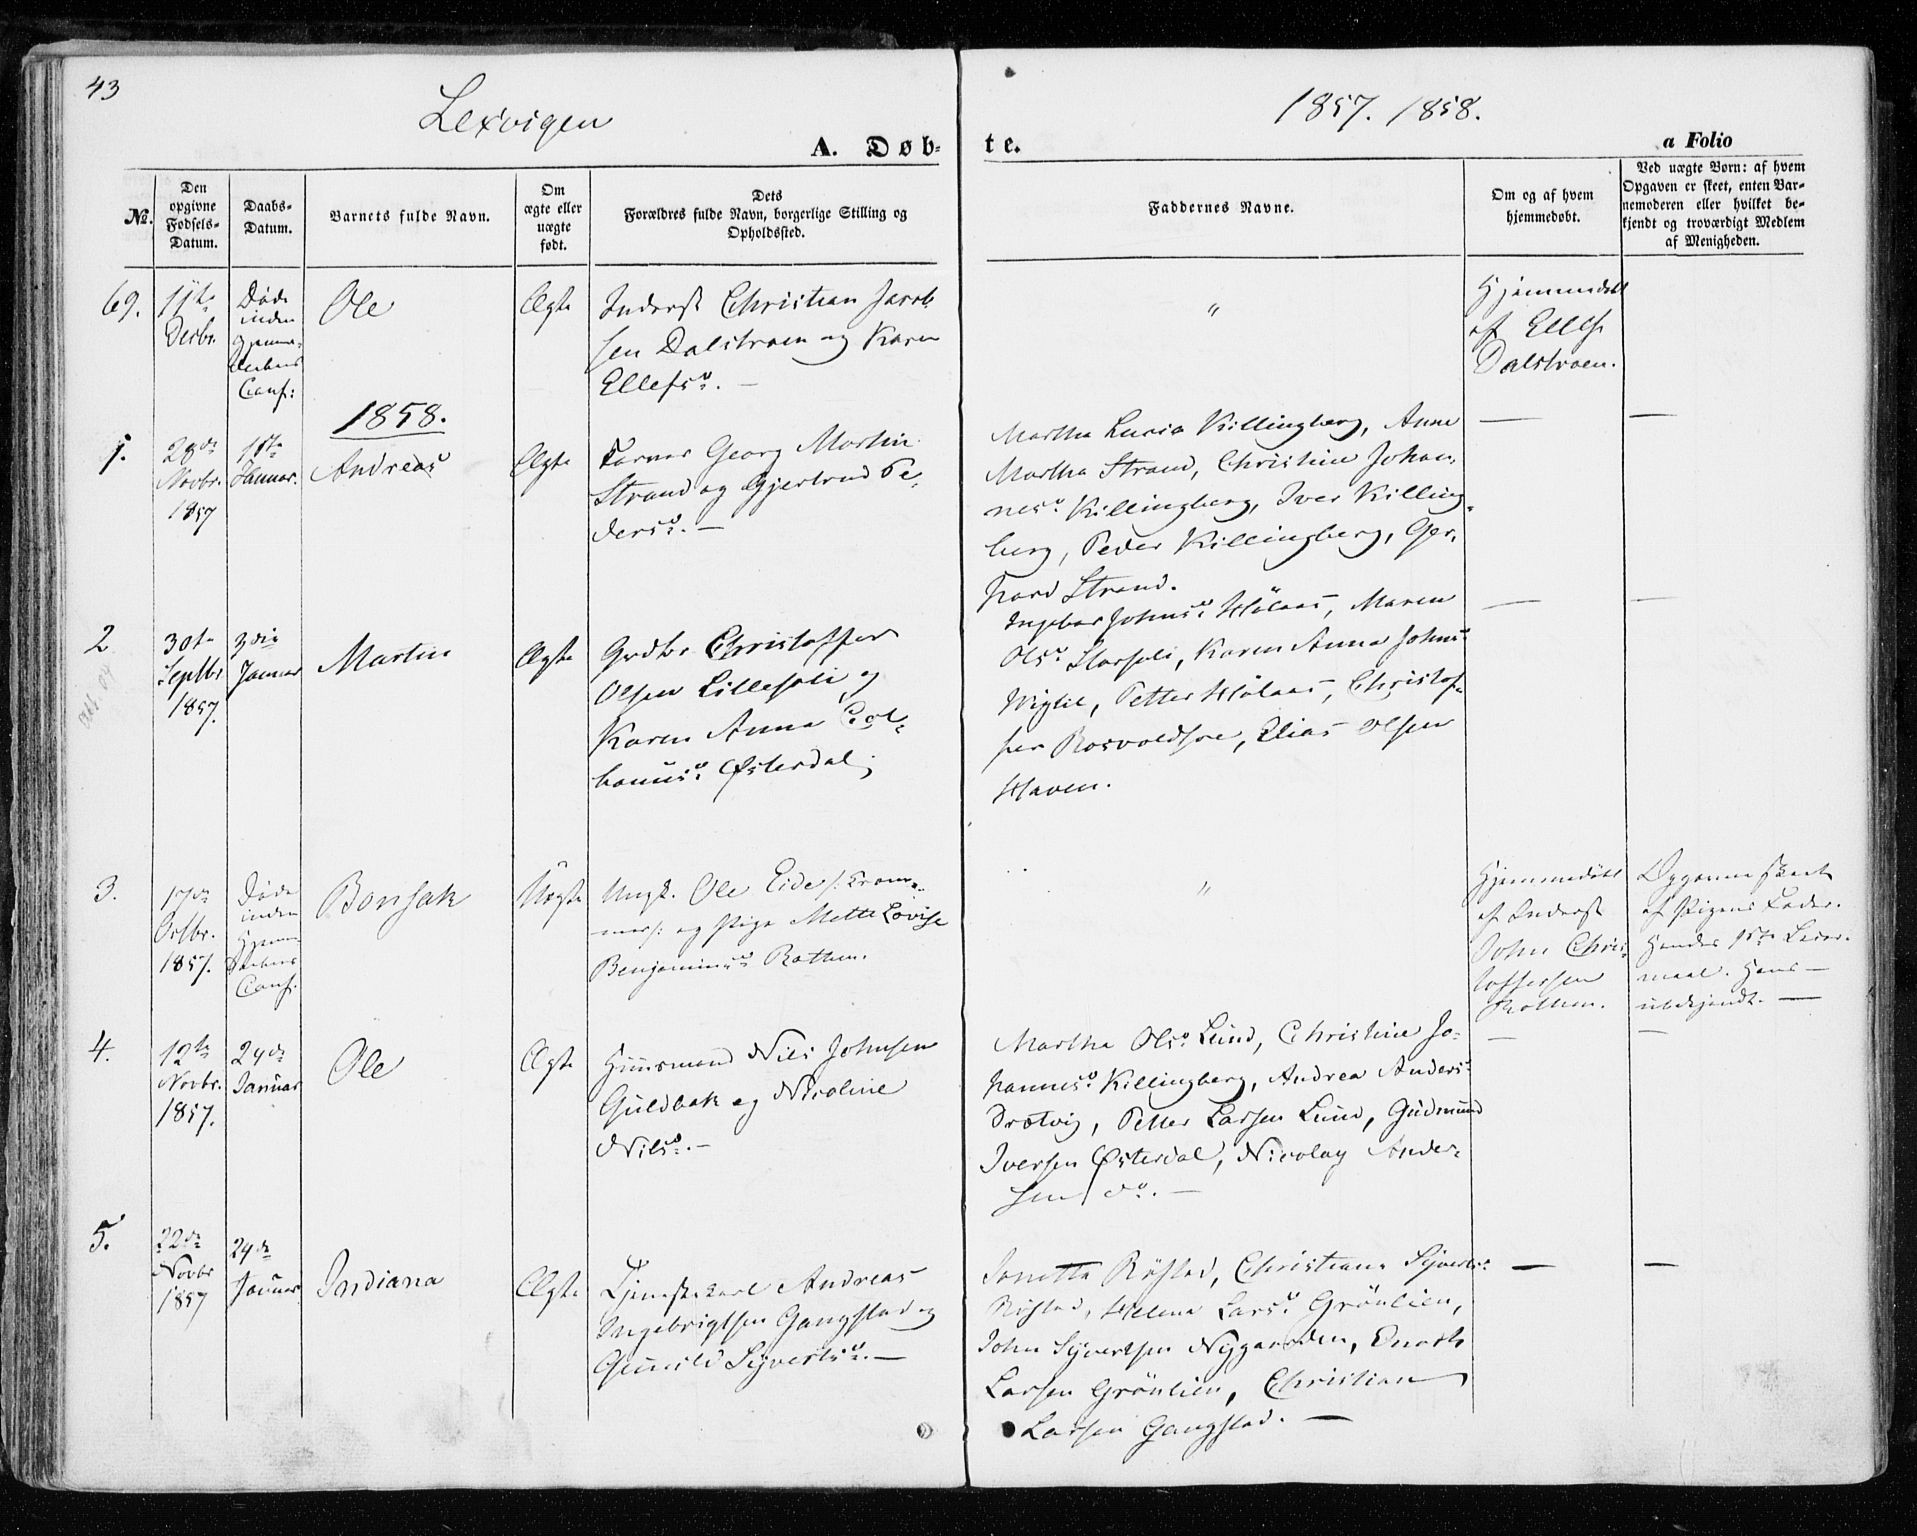 43
Lexvigen
1857. 1858.
A. Døb-
te.
a Folio
No.
Den opgivne Fødsels-Datum.
Daabs-Datum.
Barnets fulde Navn.
Om ægte eller uægte født.
Dets Forældres fulde Navn, borgerlige Stilling og Opholdssted.
Faddernes Navne.
Om og af hvem hjemmedøbt.
Ved uægte Børn: af hvem Opgaven er skeet, enten Barnemoderen eller hvilket bekjendt og troværdigt Medlem af Menigheden.
69.
11te
Decbr.
Døde
inden
Hjemme-
daabens
Conf:
Ole
Ægte
Inderst Christian Jacob
sen Dalstroen og Karen
Ellefsd. —
"
Hjemmedøbt
af Ellef
Dalstroen.
1858.
1.
28de
Novbr.
1857
1ste
Januar.
Andreas
Ægte
Farver Georg Martin
Strand og Gjertrud Pe-
dersd. —
Martha Lucia Killingberg, Anne
Martha Strand, Christine Johan-
nesd. Killingberg, Iver Killing-
berg, Peder Killingberg, Ger-
hard Strand.
—
—
2
30te
Septbr
1857.
3die
Januar
Martin
Ægte
Grdbr Christoffer
Olsen Lillesoli og
Karen Anna Col-
banusd. Østerdal
Ingebor Johnsd. Hølaas, Maren
Olsd. Storsoli, Karen Anna Johns
Petter Hølaas, Christof-
fer Rosvoldsoe, Elias Olsen
Haven.
—
—
3.
17de
Octbr.
1857.
Døde
inden
Hjemme-
daabens
Conf.
Bonsak
Uægte
Ungk. Ole Eide
og Pige Mette Lovise
Benjaminsd. Rothen.
"
Hjemmedøbt
af Inderst
John Chris-
toffersen
Rothen.
Opgaven skeet
af Pigens Fader.
Hendes 1ste Leier-
maal. Hans —
ubekjendt. —
4.
12te
Novbr.
1857.
24de
Januar
Ole
Ægte
Huusmand Nils Johnsen
Guldbak og Nicoline
Nilsd. —
Martha Olsd. Lund, Christine Jo-
hannesd. Killingberg, Andrea Anders-
Dratvig, Petter Larsen Lund, Gudmund
Iversen Østerdal, Nicolay Ander-
sen do. —
—
—
5.
22de
Novbr
1857
24de
Januar
Indiana
Ægte
Tjenestekarl Andreas
Ingebrigtsen Gangstad og
Gunild Syvertsd. —
Jonetta Røstad, Christiane Syvertsd.
Røstad, Helena Larsd. Grönlien,
John Syvertsen Nygaarden, Enoch
Larsen Grönlien, Christian
Larsen Gangstad. —
—
—